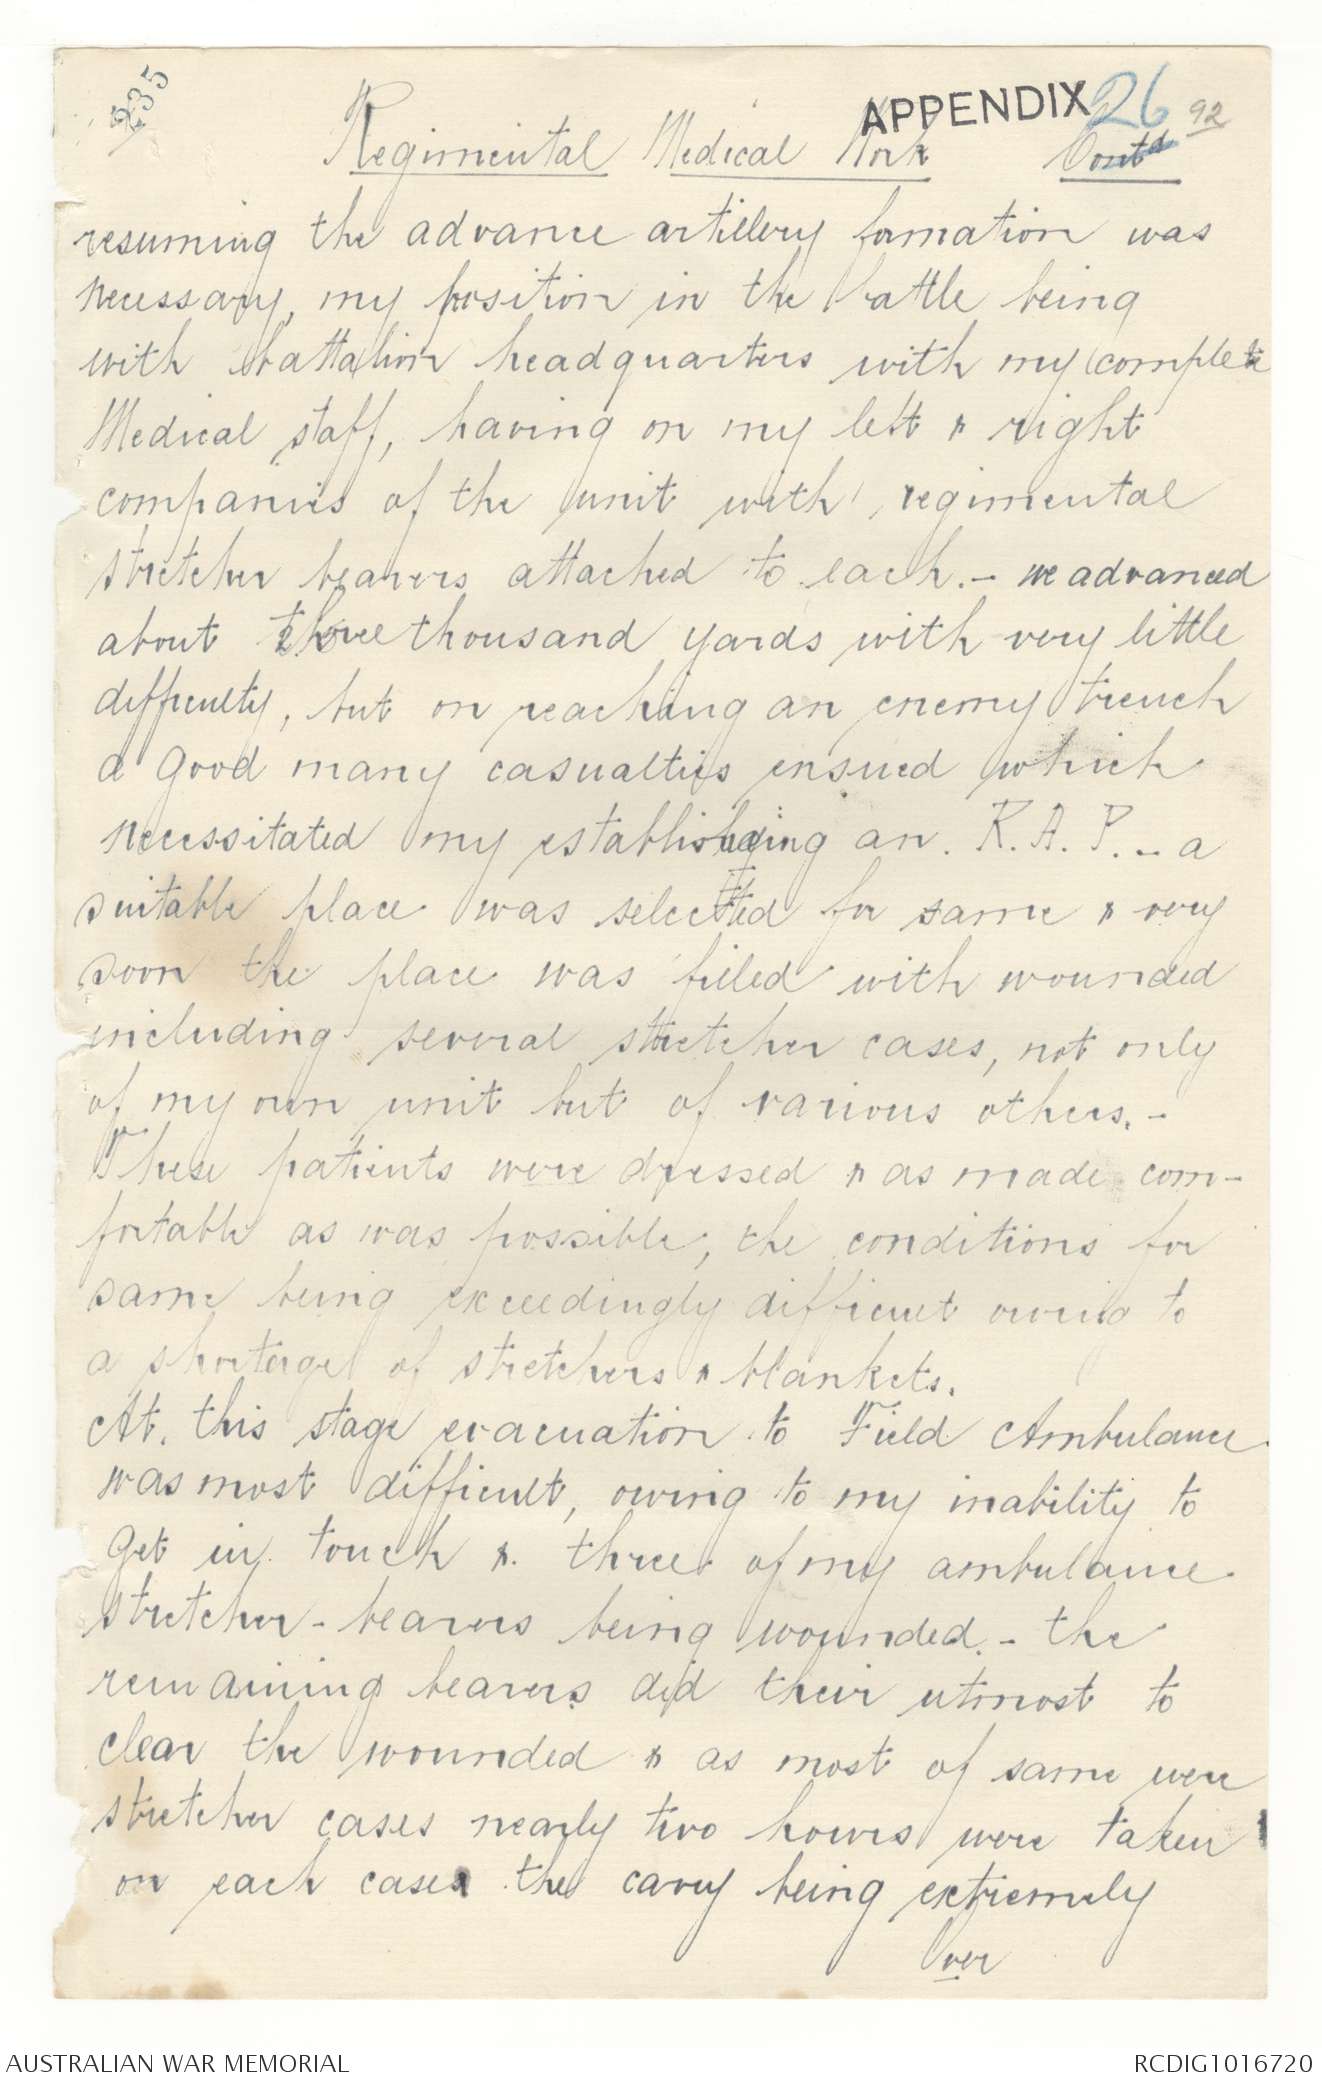 235
APPENDIX 26 92
Regimental Medical Work Contd
resuming the advance artillery formation was
necessary, my position in the battle being
with battalion headquarters with my complete
Medical staff, having on my left & right
companies of the unit with regimental
stretcher bearers attached to each. - we advanced
about three thousand yards with very little
difficulty, but on reaching an enemy trench
a good many casualties ensued which
necessitated my establishing an R.A.P. - a
suitable place was selected for same & very
soon the place was filled with wounded
including several stretcher cases, not only
of my own unit but of various others. -
These patients were dressed & as made com-
fortable as was possible, the conditions for
same being exceedingly difficult owing to
a shortage of stretchers & blankets.
At this stage evacuation to Field Ambulance
was most difficult, owing to my inability to
get in touch & three of my ambulance
stretcher-bearers being wounded. - the
remaining bearers did their utmost to
clear the wounded & as most of same were
stretcher cases nearly two hours were taken
on each case the carry being extremely
Over
AUSTRALIAN WAR MEMORIAL
RCDIG1016720